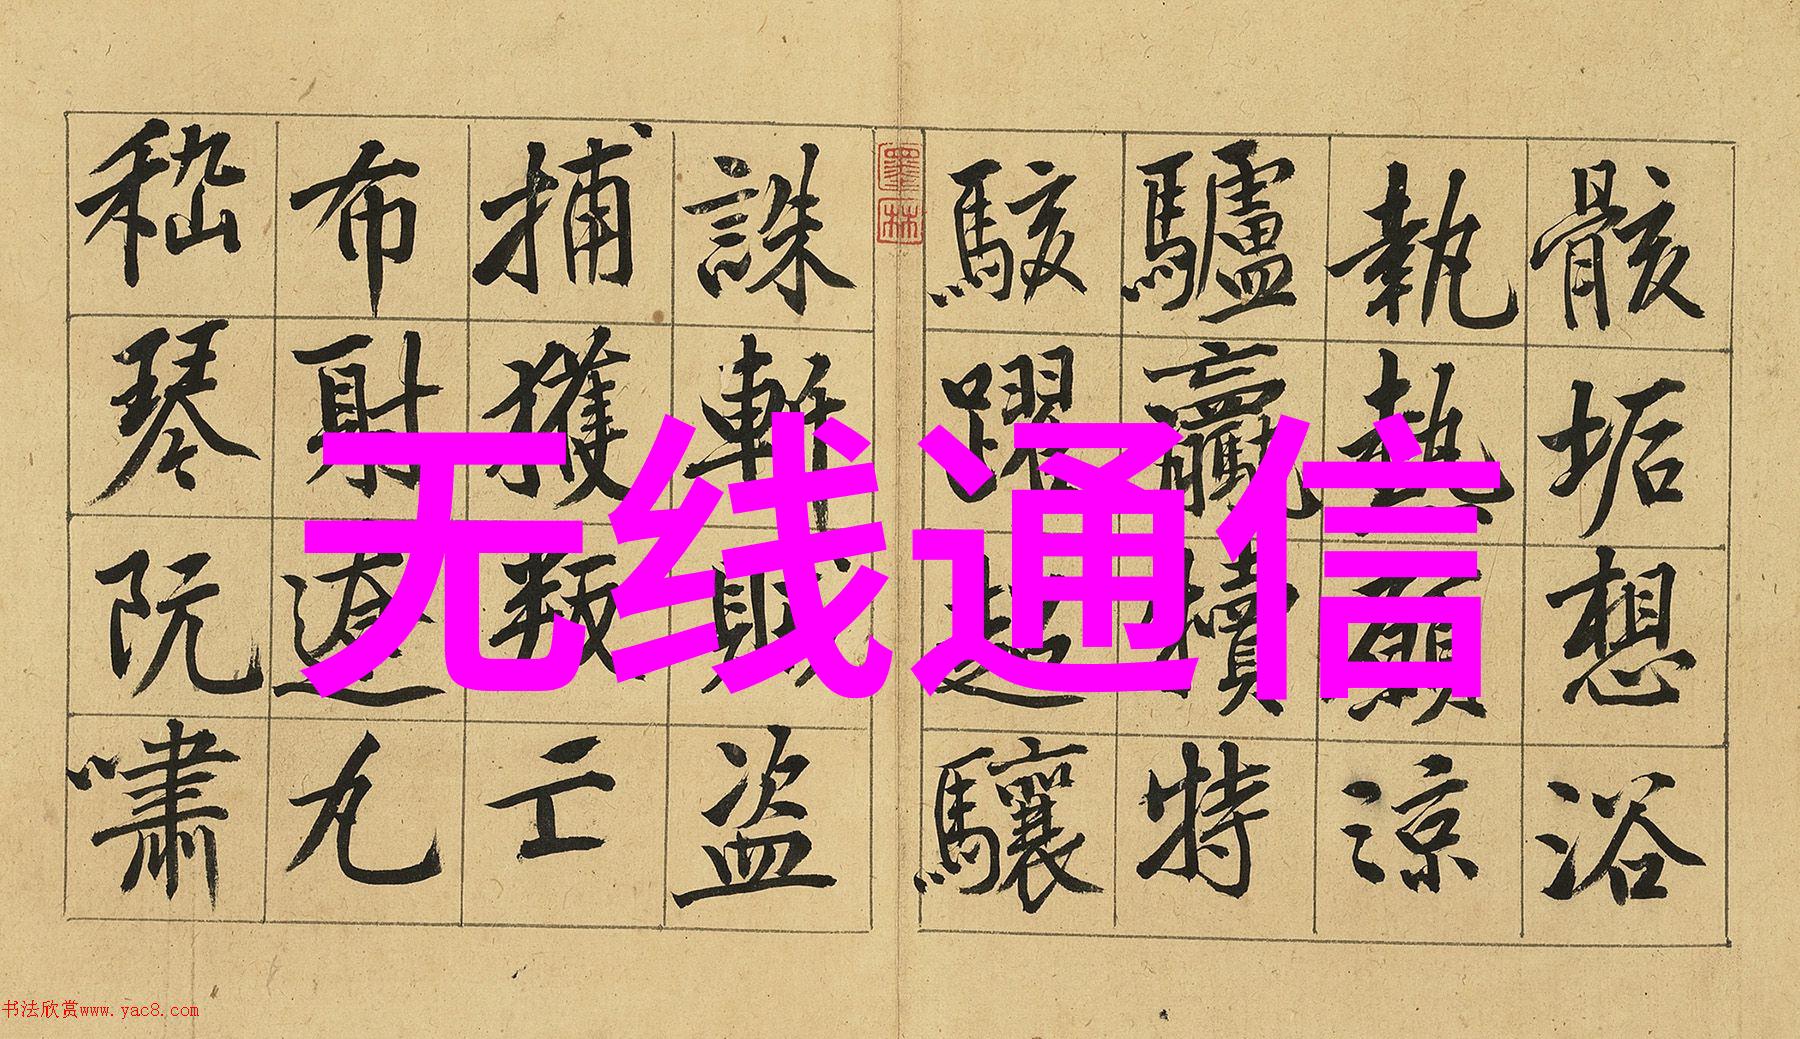 骸垢想浴
執熱願涼
驢驘犢特
駭躍超驤
墨林
誅斬賊盜
捕獲叛亡
布射遼丸
嵇琴阮嘯
无线通信
书法欣赏www.yac8.com